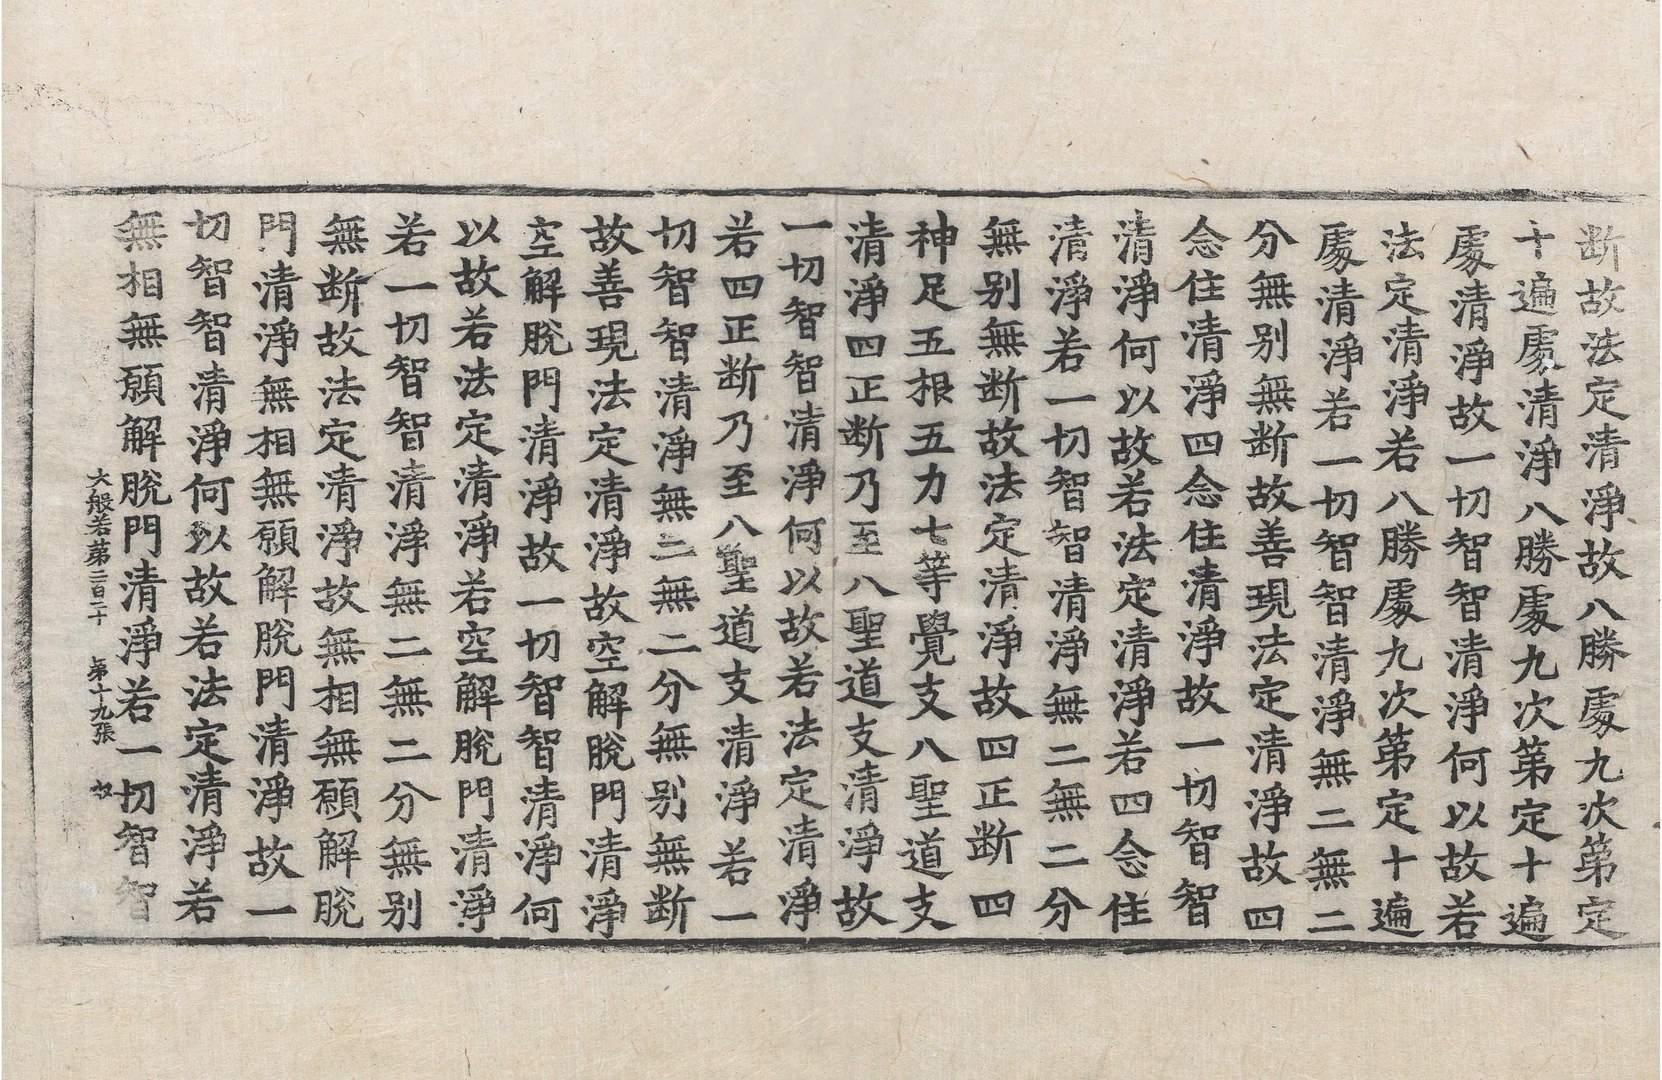 断故法定清淨故八勝處九次第定
十遍處清淨八勝處九次第定十遍
處清淨故一切智智清淨何以故若
法定清淨若八勝處九次第定十遍
處清淨若一切智智清淨無二無二
分無別無断故善現法定清淨故四
念住清淨四念住清淨故一切智智
清淨何以故若法定清淨若四念住
清淨若一切智智清淨無二無二分
無別無断故法定清淨故四正断四
神足五根五力七等覺支八聖道支
清淨四正断乃至八聖道支清淨故
一切智智清淨何以故若法定清淨
若四正断乃至八聖道支清淨若一
切智智清淨無二無二分無別無断
故善現法定清淨故空解脫門清淨
空解脫門清淨故一切智智清淨何
以故若法定清淨若空解脫門清淨
若一切智智清淨無二無二分無別
無断故法定清淨故無相無願解脫
門清淨無相無願解脫門清淨故一
切智智清淨何以故若法定清淨若
無相無願解脫門清淨若一切智智
大般若第二百二十 第十九張 奴